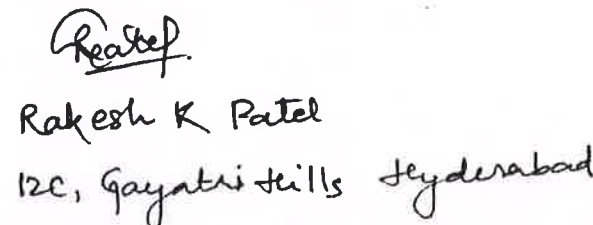 Rakesh K Patel
12C, Gayatri Hills Hyderabad